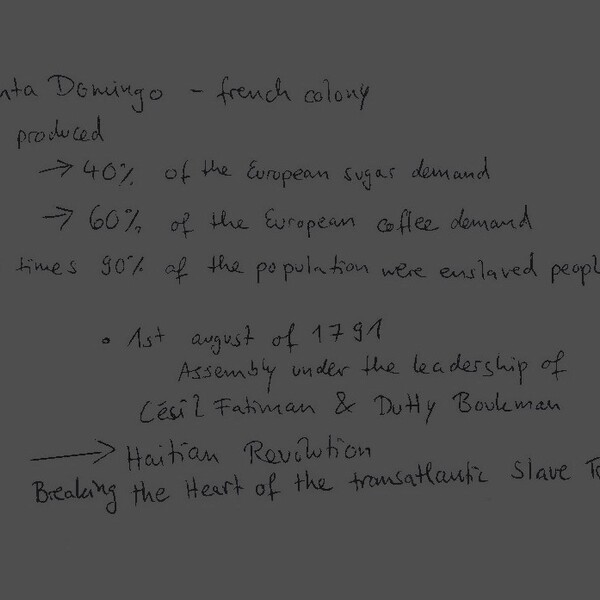 nta Domingo - french colony
produced
→ 40% of the European sugar demand
→ 60% of the European coffee demand
times 90% of the population were enslaved peopl
• 1st august of 1791
Assembly under the leadership of
Césil Fatiman & Dutty Boukman
→ Haitian Revolution
Breaking the Heart of the transatlantic Slave T